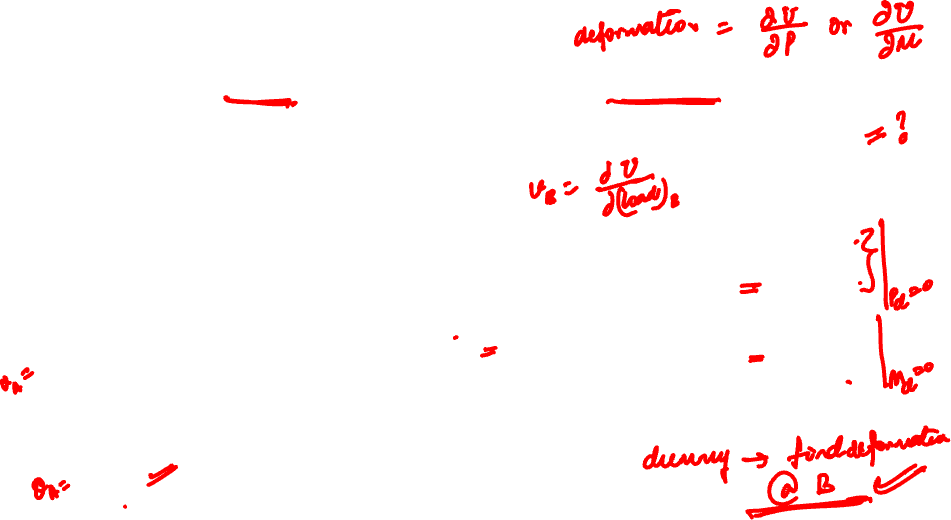 deformation = ∂U/∂P or ∂U/∂M
= ?
v_B = ∂U/∂(load)_B
= { }|P_d=0
=
= |M_d=0
v_A=
dummy → find deformation
@ B
θ_A=